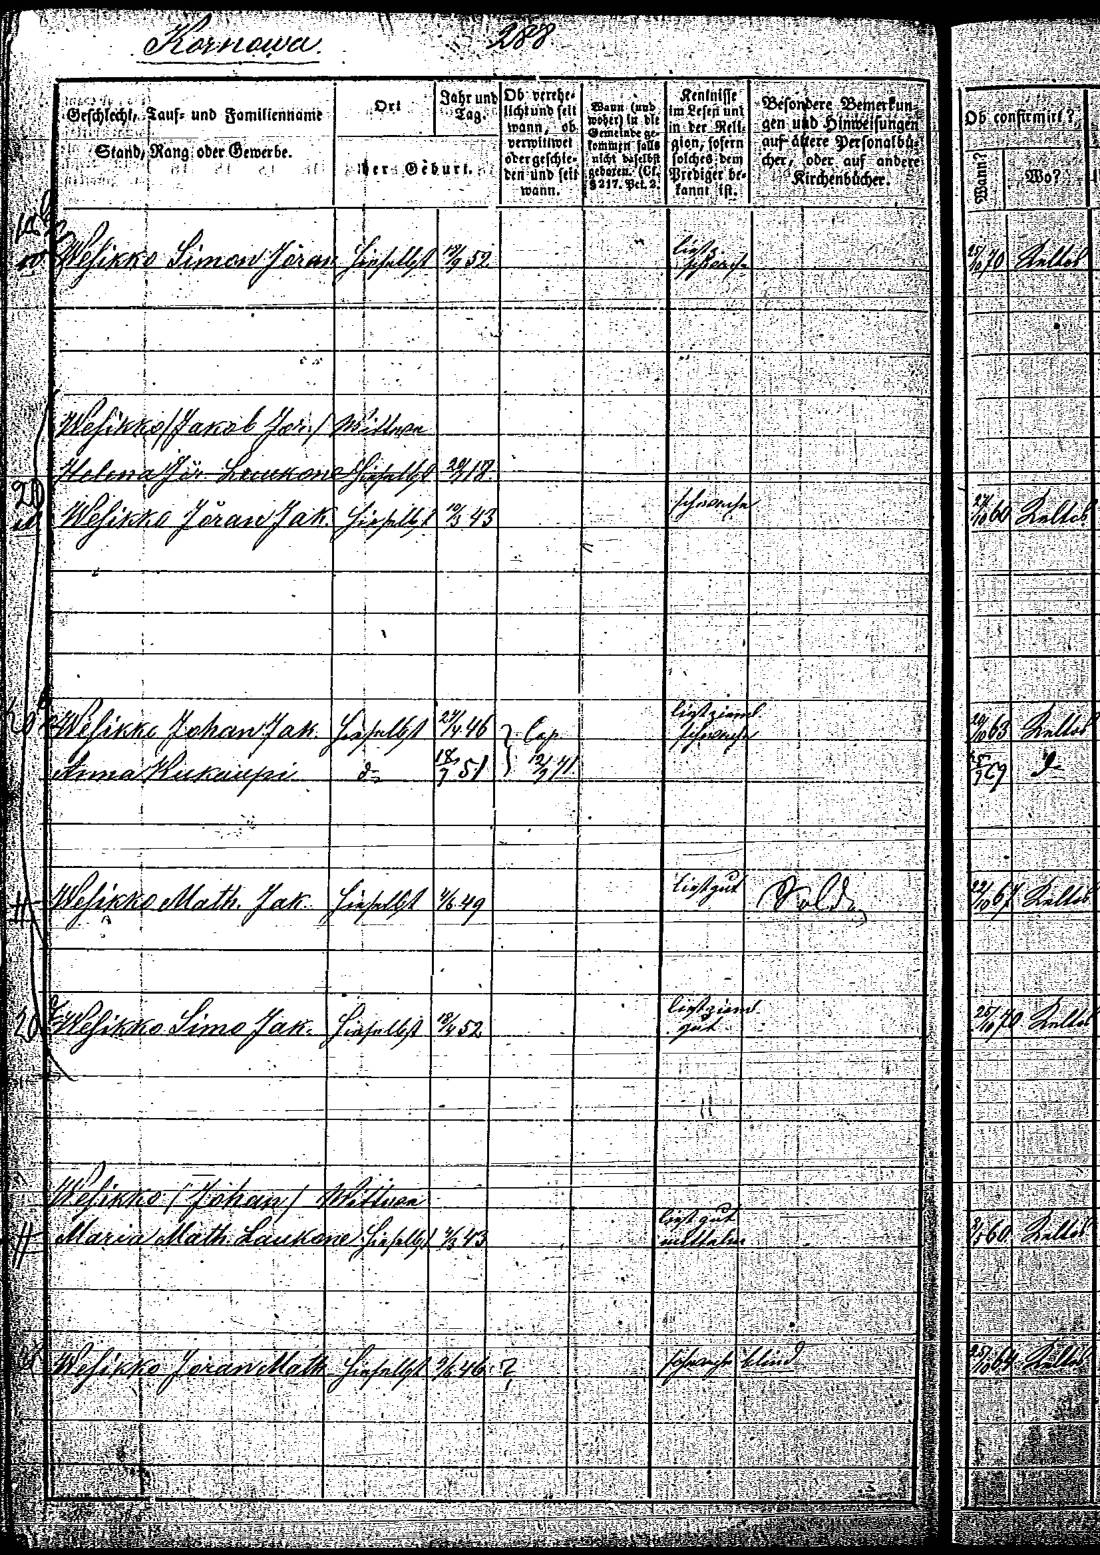 Kornowa. 288
Geschlecht, Tauf- und Familienname
Stand, Rang oder Gewerbe.
Ort
Jahr und
Tag.
der Geburt.
Ob verehe-
licht und seit
wann, ob
verwittwet
oder geschie-
den und seit
wann.
Wann (und
woher) in die
Gemeinde ge-
kommen falls
nicht daselbst
geboren. (Cf.
§ 217. Pct. 2.
Kentnisse
im Lesen und
in der Reli-
gion, sofern
solches dem
Prediger be-
kannt ist.
Besondere Bemerkun-
gen und Hinweisungen
auf ältere Personalbü-
cher, oder auf andere
Kirchenbücher.
Ob confirmirt?
Wann?
Wo?
Wesikko Simon Jöran hieselbst 52 liest schwach 25/10 70 Keltos
Wesikko /Jakob Jör./ Wittwe
Helena Jör. Laukone hieselbst 18.
20
Wesikko Jöran Jak. hieselbst 43 schwach 60 Keltos
20 Wesikko Johan Jak. hieselbst 27/4 46 Cop. liest zieml. schwach 63 Keltos
Anna Kukaupi do 51 12/9 71 69 do
Wesikko Math. Jak. hieselbst 49 liest gut Sold. 22/10 67 Keltos
20 Wesikko Simo Jak. hieselbst 18/4 52 liest zieml. gut 25/10 70 Keltos
Wesikko /Johan/ Wittwe
Maria Math. Laukone hieselbst 43 liest gut 60 Keltos
Wesikko Jöran Math. hieselbst 46 ? schwach blind 25/10 64 Keltos